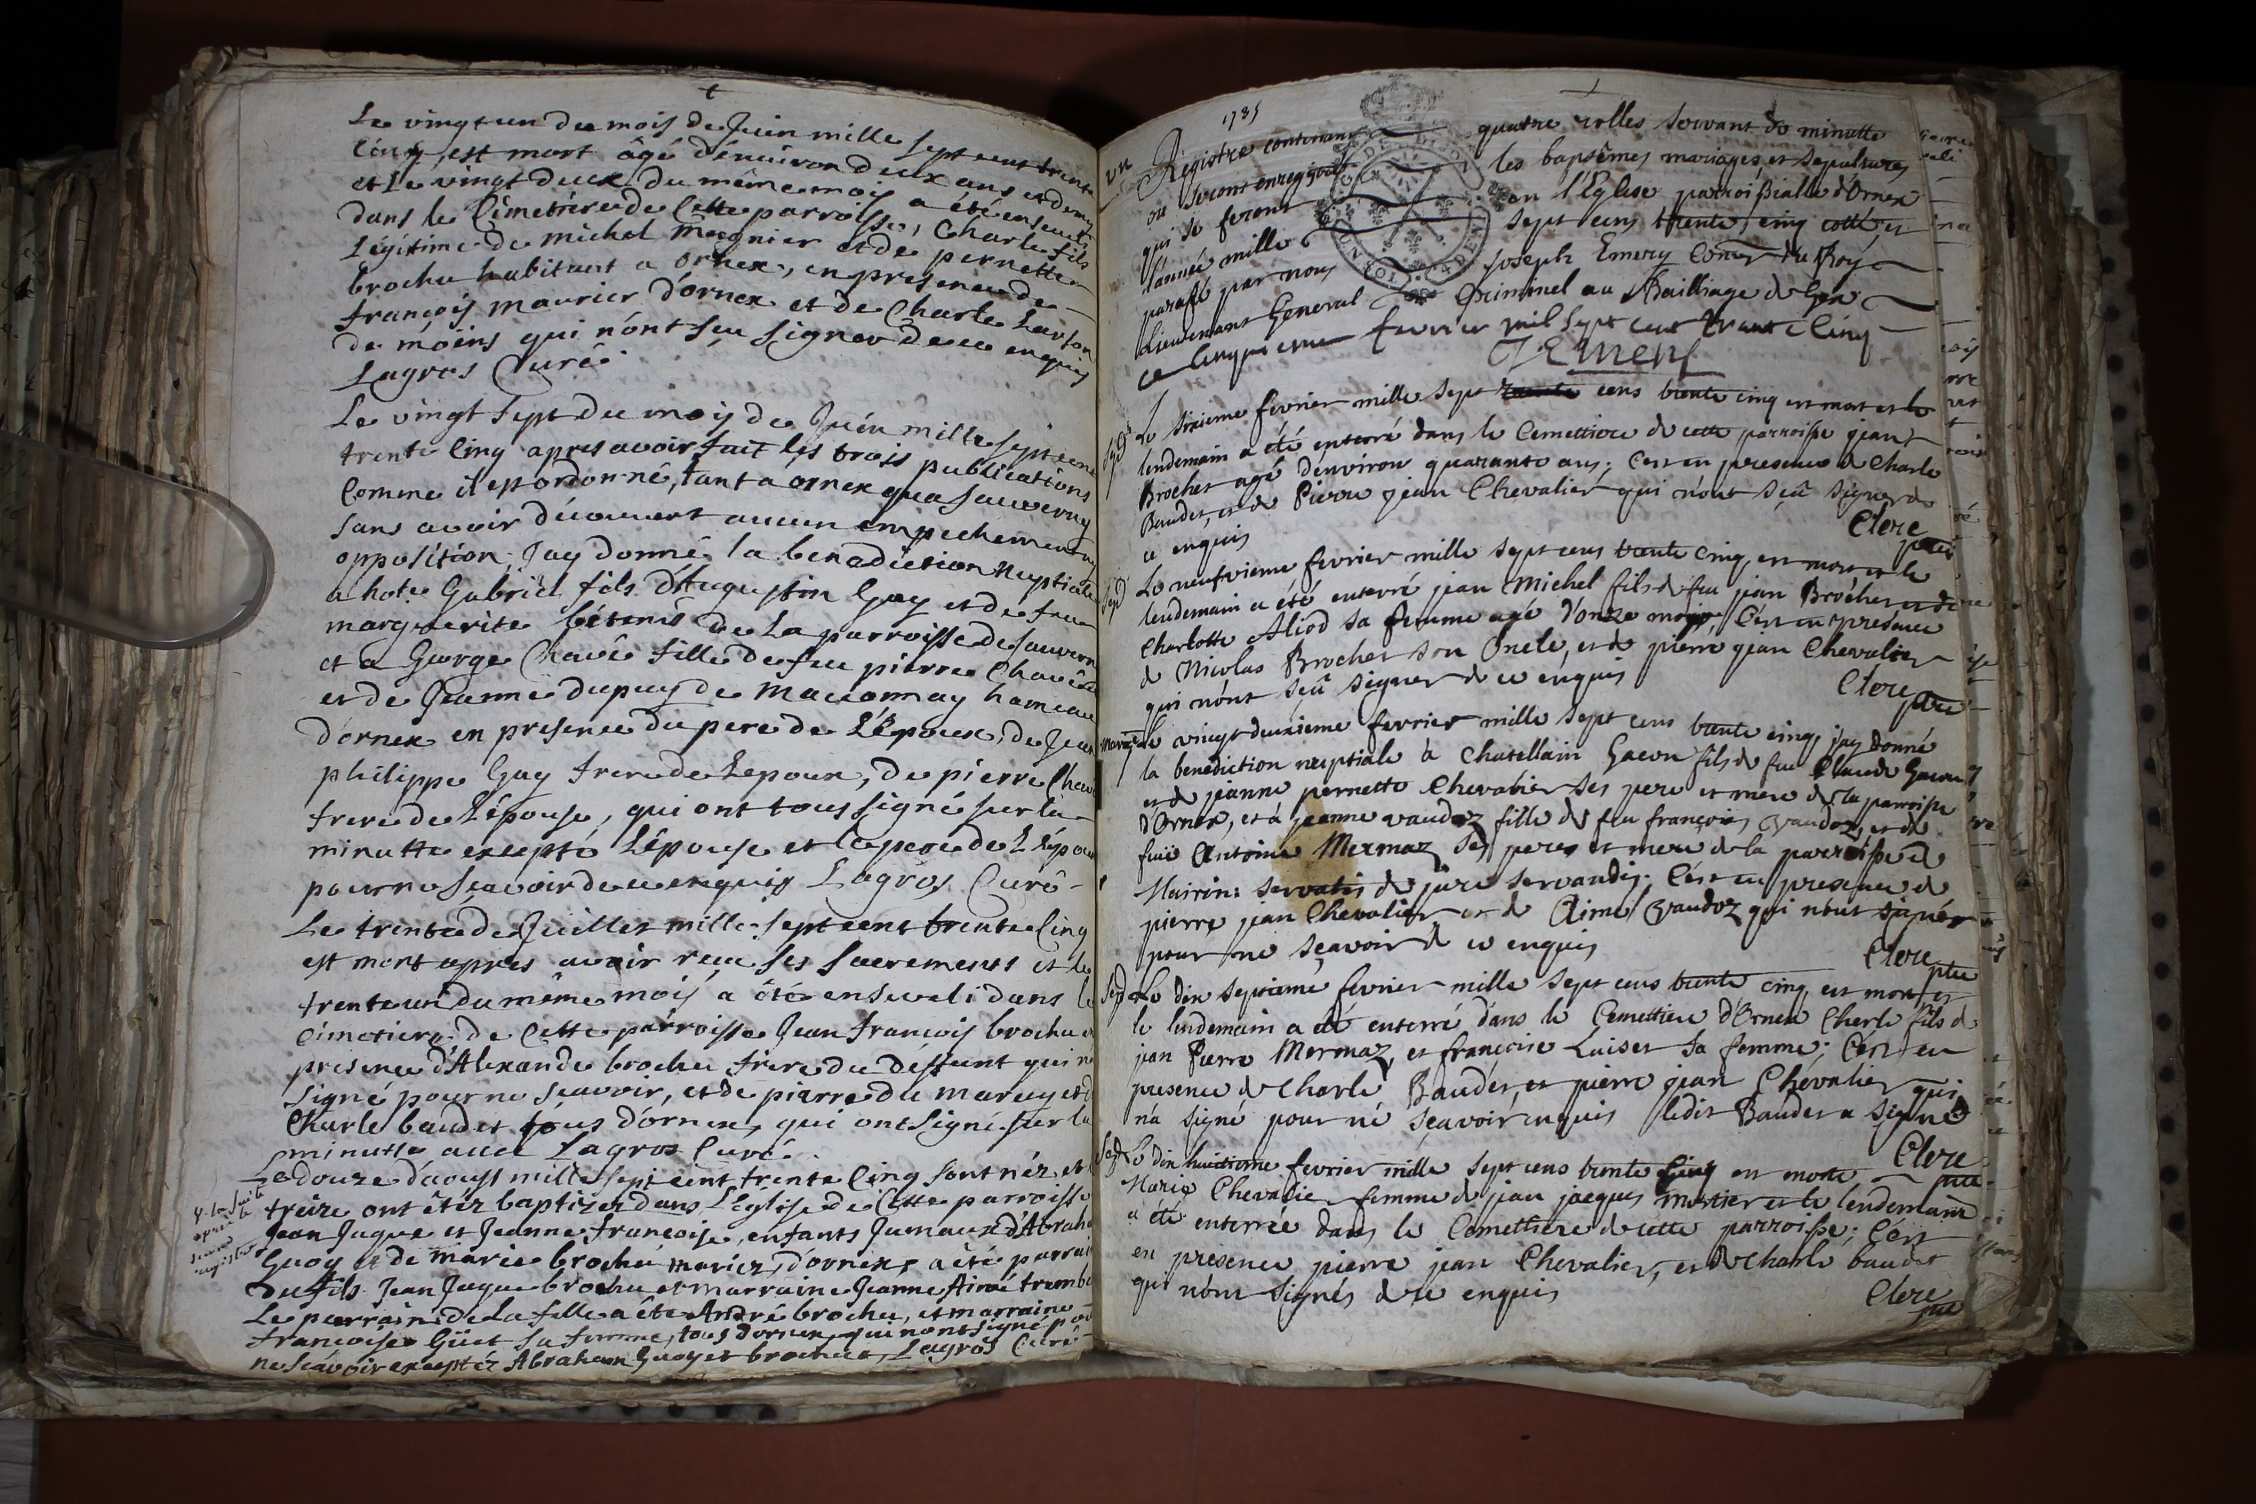 Le vingt un du mois de Juin mille sept cent trente
Cinq, est mort âgé d'environ deux ans et demy
et Le vingt deux du même mois a été enseveli
dans le Cimetiere de Cette parroisse, Charle fils
Légitime de michel Megnier et de pernette
brochu habitant a ornex, en presence de
françois maurier d'ornex et de Charle
de moëns qui n'ont sçu signer de ce enquis
Lagros Curé
Le vingt sept du mois de Juin mille sept cent
trente Cinq apres avoir fait les trois publications
Comme il est ordonné, tant a ornex qu'a sauverny
sans avoir découvert aucun empechement ny
opposition, J'ay donné la benediction Nuptiale
a hote Gabriel fils d'Augustin Guy et de feue
marguerite bétems de La parroisse de sauverny
et a George Chavêe fille de feu pierre Chavêe
et de Jeanne dupuy de Maconnay hameau
d'ornex en presence du pere de L'Epoux, de Jean
philippe Guy frere de Lepoux, de pierre Chav
frere de L'épouse, qui ont tous signé sur la
minutte excepté L'épouse et le pere de L'épou
pour ne sçavoir de ce enquis Lagros Curé
Le trente de Juillet mille sept cent trente Cinq
est mort apres avoir reçu ses sacrements et le
trente un du même mois a été enseveli dans le
Cimetiere de Cette parroisse Jean francois brochu en
presence d'Alexandre brochu frere du deffunt qui n'a
signé pour ne sçavoir, et de pierre du marcy et d
Charle baudet tous d'ornex, qui ont signé sur la
minutte avec Lagros Curé
Le douze d'aoust mille sept cent trente Cinq sont nés et le
y. la suite
apres le
second
registre
treize ont étéz baptizez dans L'Eglise de Cette parroisse
Jean Jaque et Jeanne francoise, enfants Jumeaux d'Abraham
Guoy et de marie brochu mariez, d'ornex, a été parrain
Du fils Jean Jaque brochu et marraine Jeanne Aimé
Le parrain de La fille a été André brochu, et marraine
francoise Güet sa femme, tous d'ornex, qui n'ont signé pour
ne sçavoir exceptéz Abraham Guoy et brochu, Lagros Curé
1735
un
Registre contenant quatre rolles servant de minutte
ou seront enregistrés les baptêmes mariages et sepultures
qui se feront en l'Eglise parroissialle d'Ornex
l'année mille sept cens trente cinq cotté et
parafé par nous Joseph Emery Coner du Roy
Lieutenant General Criminel au Bailliage de Gex
ce Cinquieme fevrier mil sept cent trente Cinq
J Emery
Sep
Le sixieme fevrier mille sept cens trente cinq est mort et le
lendemain a été enterré dans le Cemettiere de cette parroisse jean
Brochet agé d'environ quarante ans; C'est en presence de Charle
Baudet, et de Pierre jean Chevalier qui n'ont sçû signer de
ce enquis
Clere
ptre
Sep
Le neufvieme fevrier mille sept cens trente cinq, est mort et le
lendemain a été enterré jean Michel fils de feu jean Brochet et de
Charlotte Aliod sa femme agé d'onze mois; C'est en presence
de Nicolas Brochet son Oncle, et de pierre jean Chevalier
qui n'ont sçû signer de ce enquis
Clere
ptre
Mariage
Le vingt deuxieme fevrier mille sept cens trente cinq, j'ay donné
la benediction nuptiale à Chatellain Gacon fils de feu Claude Gacon
et de jeanne pernette Chevalier ses pere et mere de la parroisse
d'Ornex, et à jeanne vaudoz fille de feu françois Vaudoz, et de
fuë Antoine Mermaz ses peres et mere de la parroisse de
Mairin: servatis de jure servandis. C'est en presence de
pierre jean Chevalier et de Aimé Vaudoz qui n'ont signés
pour ne sçavoir de ce enquis
Clere
ptre
Sep
Le dix septieme fevrier mille sept cens trente cinq est mort et
le lendemain a été enterré dans le Cemettiere d'Ornex Charle fils de
jean Pierre Mermaz, et françoise Luiset sa femme; C'est en
presence de Charle Baudet, et pierre jean Chevalier qui
n'a signé pour ne sçavoir enquis ledit Baudet a signé
Clere
ptre
Sep
Le dix huitieme fevrier mille sept cens trente Cinq est morte
Marie Chevalier femme de jean jacques Mortier et le lendemain
a été enterrée dans le Cemettiere de cette parroisse; C'est
en presence pierre jean Chevalier, et de Charle baudet
qui n'ont signés de ce enquis
Clere
ptre